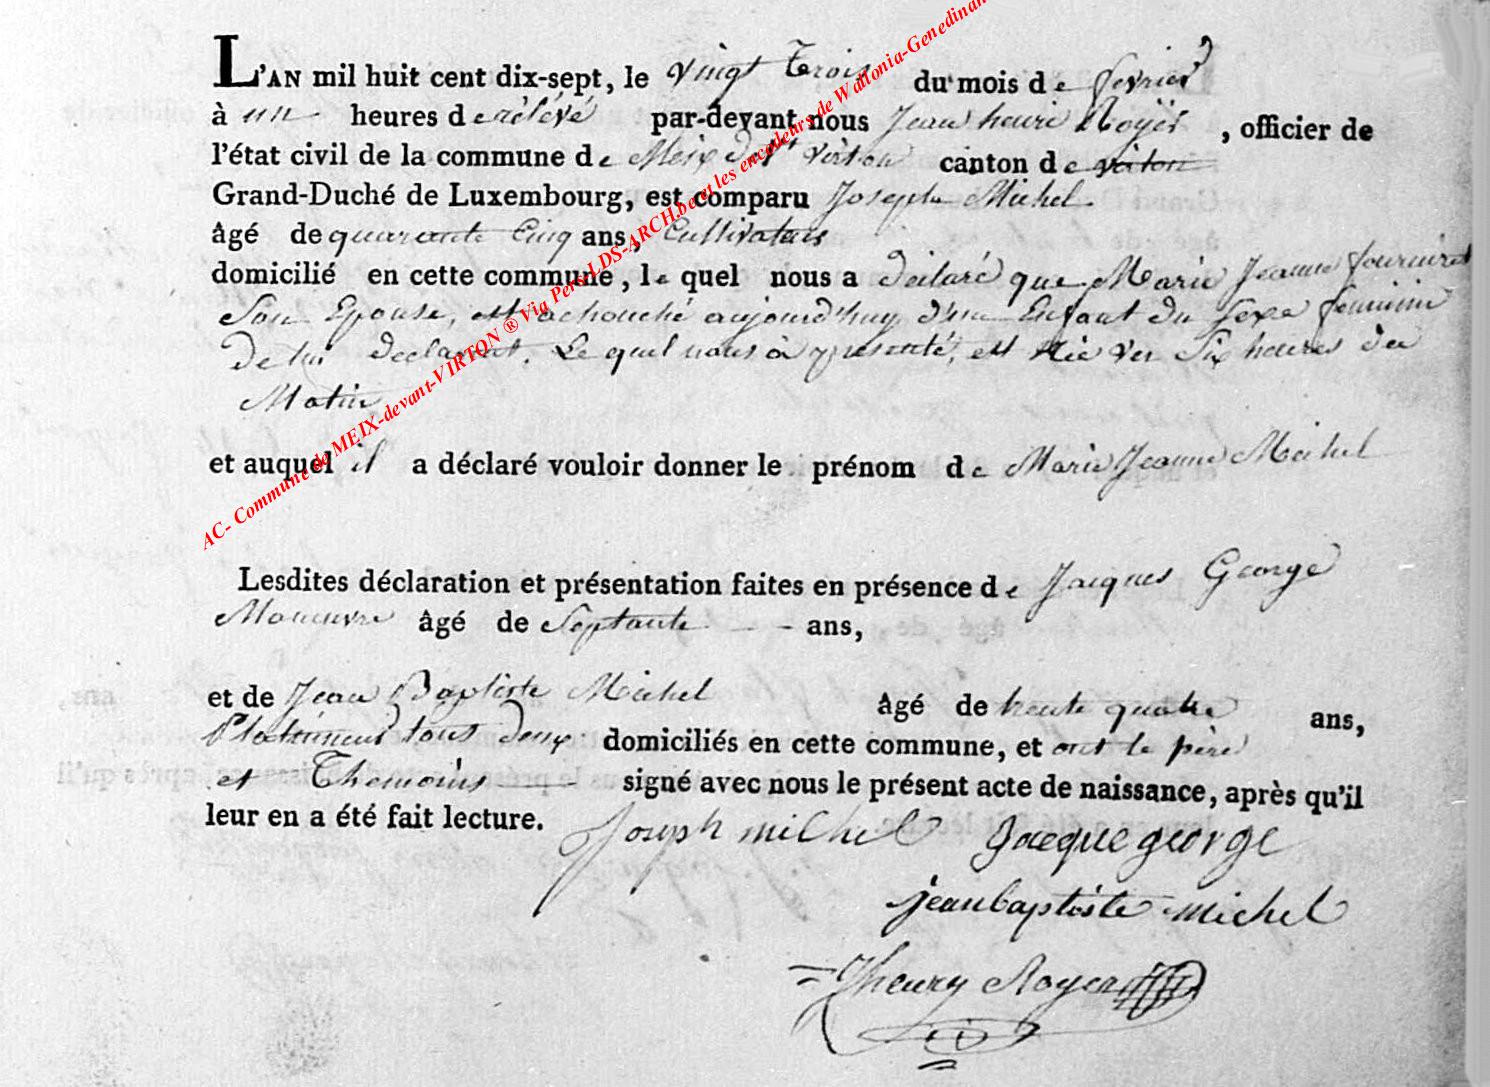 L'AN mil huit cent dix-sept, le vingt Trois du mois de fevrier
à un heures de rélévé par-devant nous Jean henri Royer, officier de
l'état civil de la commune de Meix dvt virton canton de virton
Grand-Duché de Luxembourg, est comparu Joseph Michel
âgé de quarante Cinq ans, Cultivateur
domicilié en cette commune, le quel nous a déclaré que Marie Jeanne fourniret
Son Epouse, est achouché aujourd'huy d'un Enfant du Sexe feminin
de lui declarant. Le quel nous à presenté, est Née ver Six heures du
Matin
et auquel il a déclaré vouloir donner le prénom de Marie Jeanne Michel
Lesdites déclaration et présentation faites en présence de Jacques George
Manuvre âgé de Septante ans,
et de Jean Baptiste Michel âgé de trente quatre ans,
tous deux domiciliés en cette commune, et ont le père
et Themoins signé avec nous le présent acte de naissance, après qu'il
leur en a été fait lecture.
Joseph michel Jacque george
jean baptiste michel
Jhenry Royer
AC- Commune de MEIX-devant-VIRTON ® Via Pers-LDS-ARCH.be et les encodeurs de Wallonia-Genedinan